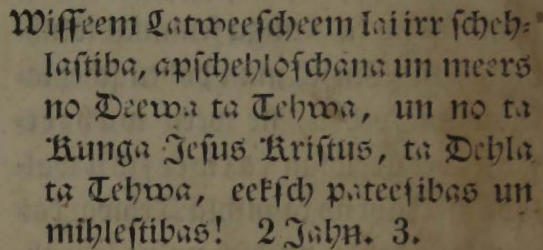 Wiſſeem Latweeſcheem lai irr ſcheh⸗
laſtiba, apſchehloſchana un meers
no Deewa ta Tehwa, un no ta
Kunga Jeſus Kriſtus, ta Dehla
ta Tehwa, eekſch pateeſibas un
mihleſtibas! 2 Jahn. 3.